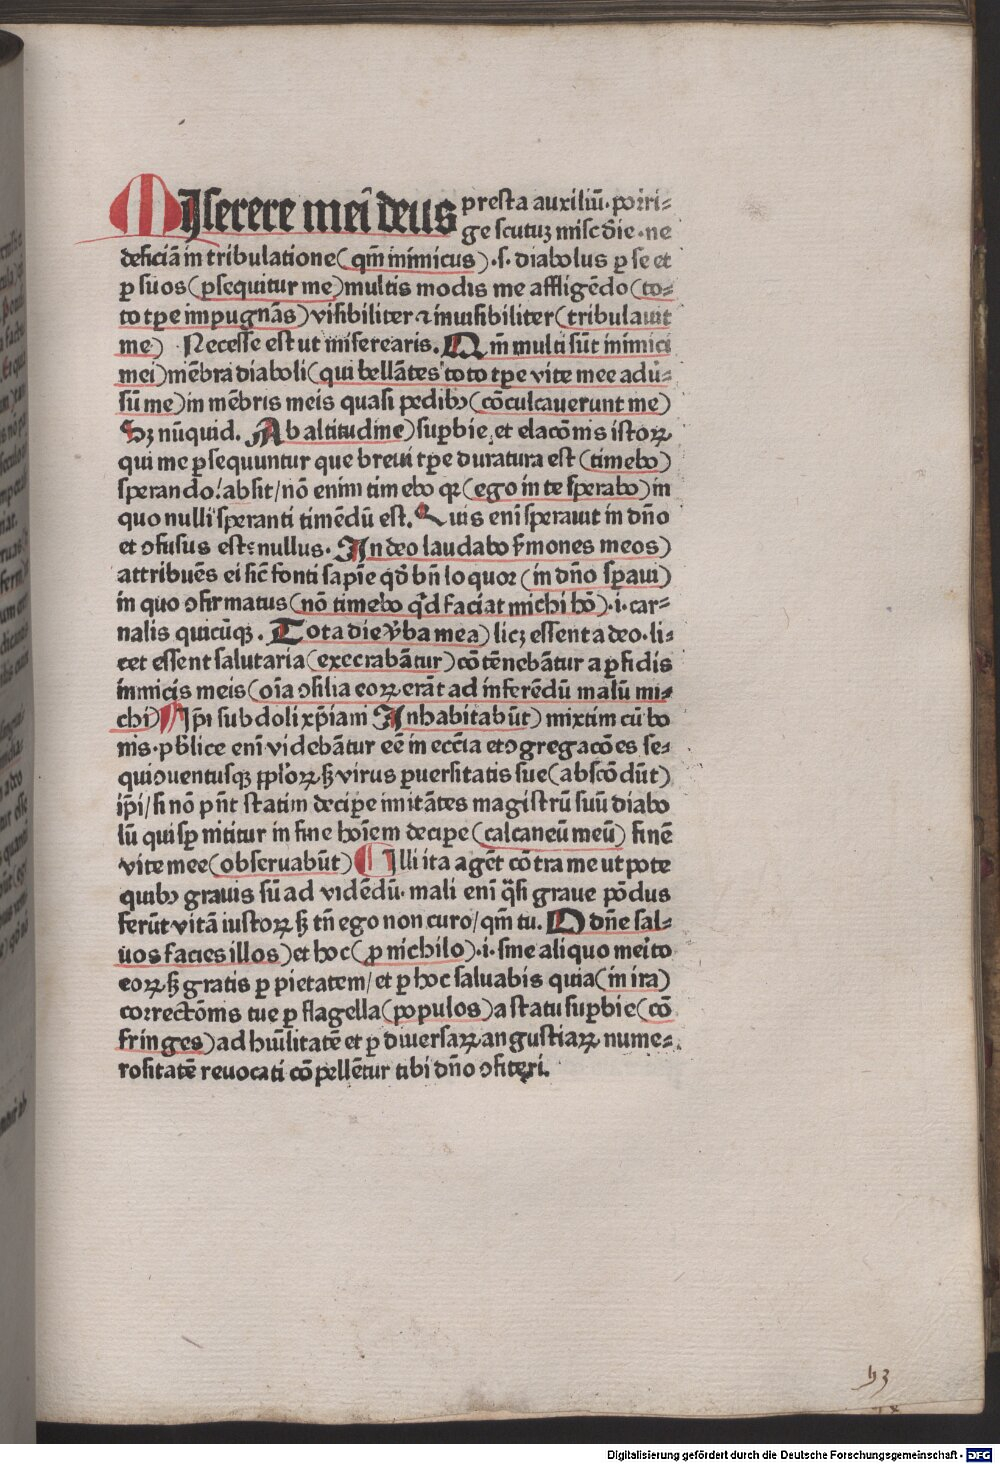 MIserere mei deus presta auxiliū. porri⸗
ge scutuꝫ misc̄die. ne
deficiā in tribulatione (qm̄ inimicus) .s. diabolus ꝑ se et
ꝑ suos (ꝑsequitur me) multis modis me affligēdo (to⸗
to tꝑe impugnās) visibiliter ⁊ inuisibiliter (tribulauit
me) Necesse est ut miserearis. Qm̄ multi sūt inimici
mei) mēbra diaboli (qui bellātes toto tꝑe vite mee adū⸗
sū me) in mēbris meis quasi pedibꝰ (cōculcauerunt me)
Sꝫ nūquid. Ab altitudine) suꝑbie et elacōnis istoꝝ
qui me ꝑsequuntur que breui tꝑe duratura est (timebo)
sperando! absit/ nō enim timebo qꝛ (ego in te sperabo) in
quo nulli speranti timēdū est. Quis enī sperauit in dn̄o
et ꝯfusus est: nullus. In deo laudabo s̄mones meos)
attribuēs ei sic̄ fonti sapīe qd̄ bn̄ loquor (in dn̄o sꝑaui)
in quo ꝯfirmatus (nō timebo qͥd faciat michi hō) .i. car⸗
nalis quicūqꝫ. Tota die v̄ba mea) licꝫ essent a deo. li⸗
cet essent salutaria (execrabātur) cōtēnebātur a ꝑfidis
inimicis meis (oīa ꝯsilia eoꝝ erāt ad inferēdū malū mi⸗
chi) Ip̄i subdoli xp̄iani Inhabitabūt) mixtim cū bo
nis. publice enī videbātur eē in eccīa et ꝯgregacōes se⸗
qui ꝯuentusqꝫ pp̄loꝝ sꝫ virus ꝑuersitatis sue (abscōdūt)
ip̄i/ si nō pn̄t statim deciꝑe imitātes magistrū suū diabo
lū qui sꝑ nititur in fine hoīem deciꝑe (calcaneū meū) finē
vite mee (obseruabūt) Illi ita agēt cōtra me ut pote
quibꝰ grauis sū ad vidēdū. mali enī qͣsi graue pōdus
ferūt vitā iustoꝝ sꝫ tn̄ ego non curo/ qm̄ tu. O dn̄e sal⸗
uos facies illos) et hoc (ꝓ nichilo) .i. sine aliquo meīto
eoꝝ sꝫ gratis ꝑ pietatem/ et ꝑ hoc saluabis quia (in ira)
correctōnis tue ꝑ flagella (populos) a statu suꝑbie (cō
fringes) ad hūilitatē et ꝑ diuersaꝝ angustiaꝝ nume⸗
rositatē reuocati cōpellētur tibi dn̄o ꝯfiteri.
Digitalisierung gefördert durch die Deutsche Forschungsgemeinschaft - DFG